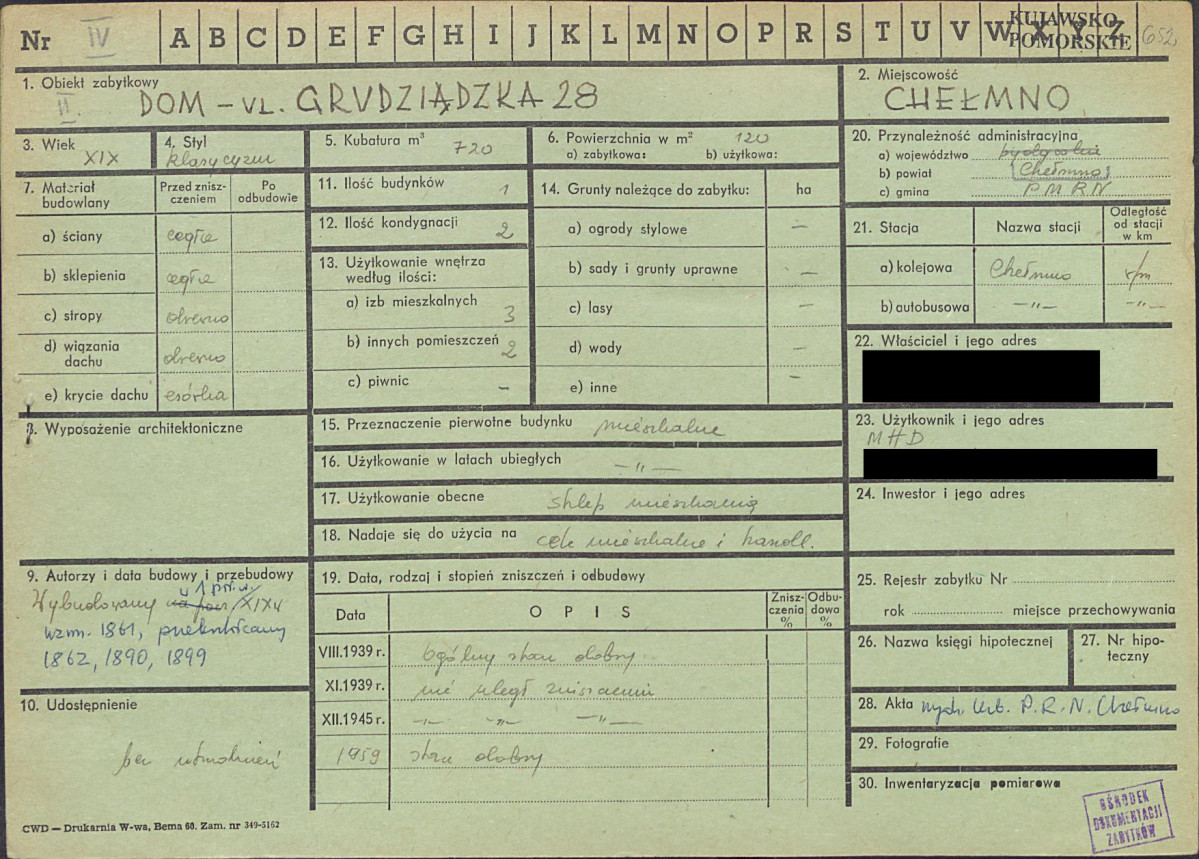 Nr IV A B C D E F G H I J K L M N O P R S T U V W X Y Z KUJAWSKO POMORSKIE 652
1. Obiekt zabytkowy
II DOM – UL. GRUDZIĄDZKA 28
2. Miejscowość
CHEŁMNO
3. Wiek
XIX
4. Styl
klasycyzm
5. Kubatura m³
720
6. Powierzchnia w m² 120
a) zabytkowa: b) użytkowa:
20. Przynależność administracyjna
a) województwo bydgoskie
b) powiat Chełmno
c) gmina P M R N
7. Materiał budowlany
Przed znisz-czeniem
Po odbudowie
a) ściany cegła
b) sklepienia cegła
c) stropy drewno
d) wiązania dachu drewno
e) krycie dachu esówka
11. Ilość budynków 1
12. Ilość kondygnacji 2
13. Użytkowanie wnętrza według ilości:
a) izb mieszkalnych 3
b) innych pomieszczeń 2
c) piwnic –
14. Grunty należące do zabytku: ha
a) ogrody stylowe –
b) sady i grunty uprawne –
c) lasy –
d) wody –
e) inne –
21. Stacja Nazwa stacji Odległość od stacji w km
a) kolejowa Chełmno
b) autobusowa –„– –„–
22. Właściciel i jego adres
8. Wyposażenie architektoniczne
15. Przeznaczenie pierwotne budynku mieszkalne
16. Użytkowanie w latach ubiegłych –„–
17. Użytkowanie obecne sklep mieszkania
18. Nadaje się do użycia na cele mieszkalne i handl.
23. Użytkownik i jego adres
MHD
24. Inwestor i jego adres
9. Autorzy i data budowy i przebudowy
Wybudowany w 1 poł. w. XIX w
wzm. 1861, przekształcany
1862, 1890, 1899
10. Udostępnienie
bez utrudnień
19. Data, rodzaj i stopień zniszczeń i odbudowy
Data O P I S Znisz-czenia % Odbu-dowa %
VIII.1939 r. ogólny stan dobry
XI.1939 r. nie uległ zniszczeniu
XII.1945 r. –„– –„– –„–
1959 stan dobry
25. Rejestr zabytku Nr
rok miejsce przechowywania
26. Nazwa księgi hipotecznej
27. Nr hipo-teczny
28. Akta P. R. N. Chełmno
29. Fotografie
30. Inwentaryzacja pomiarowa
OŚRODEK
DOKUMENTACJI
ZABYTKÓW
CWD — Drukarnia W-wa, Bema 60. Zam. nr 349-5162